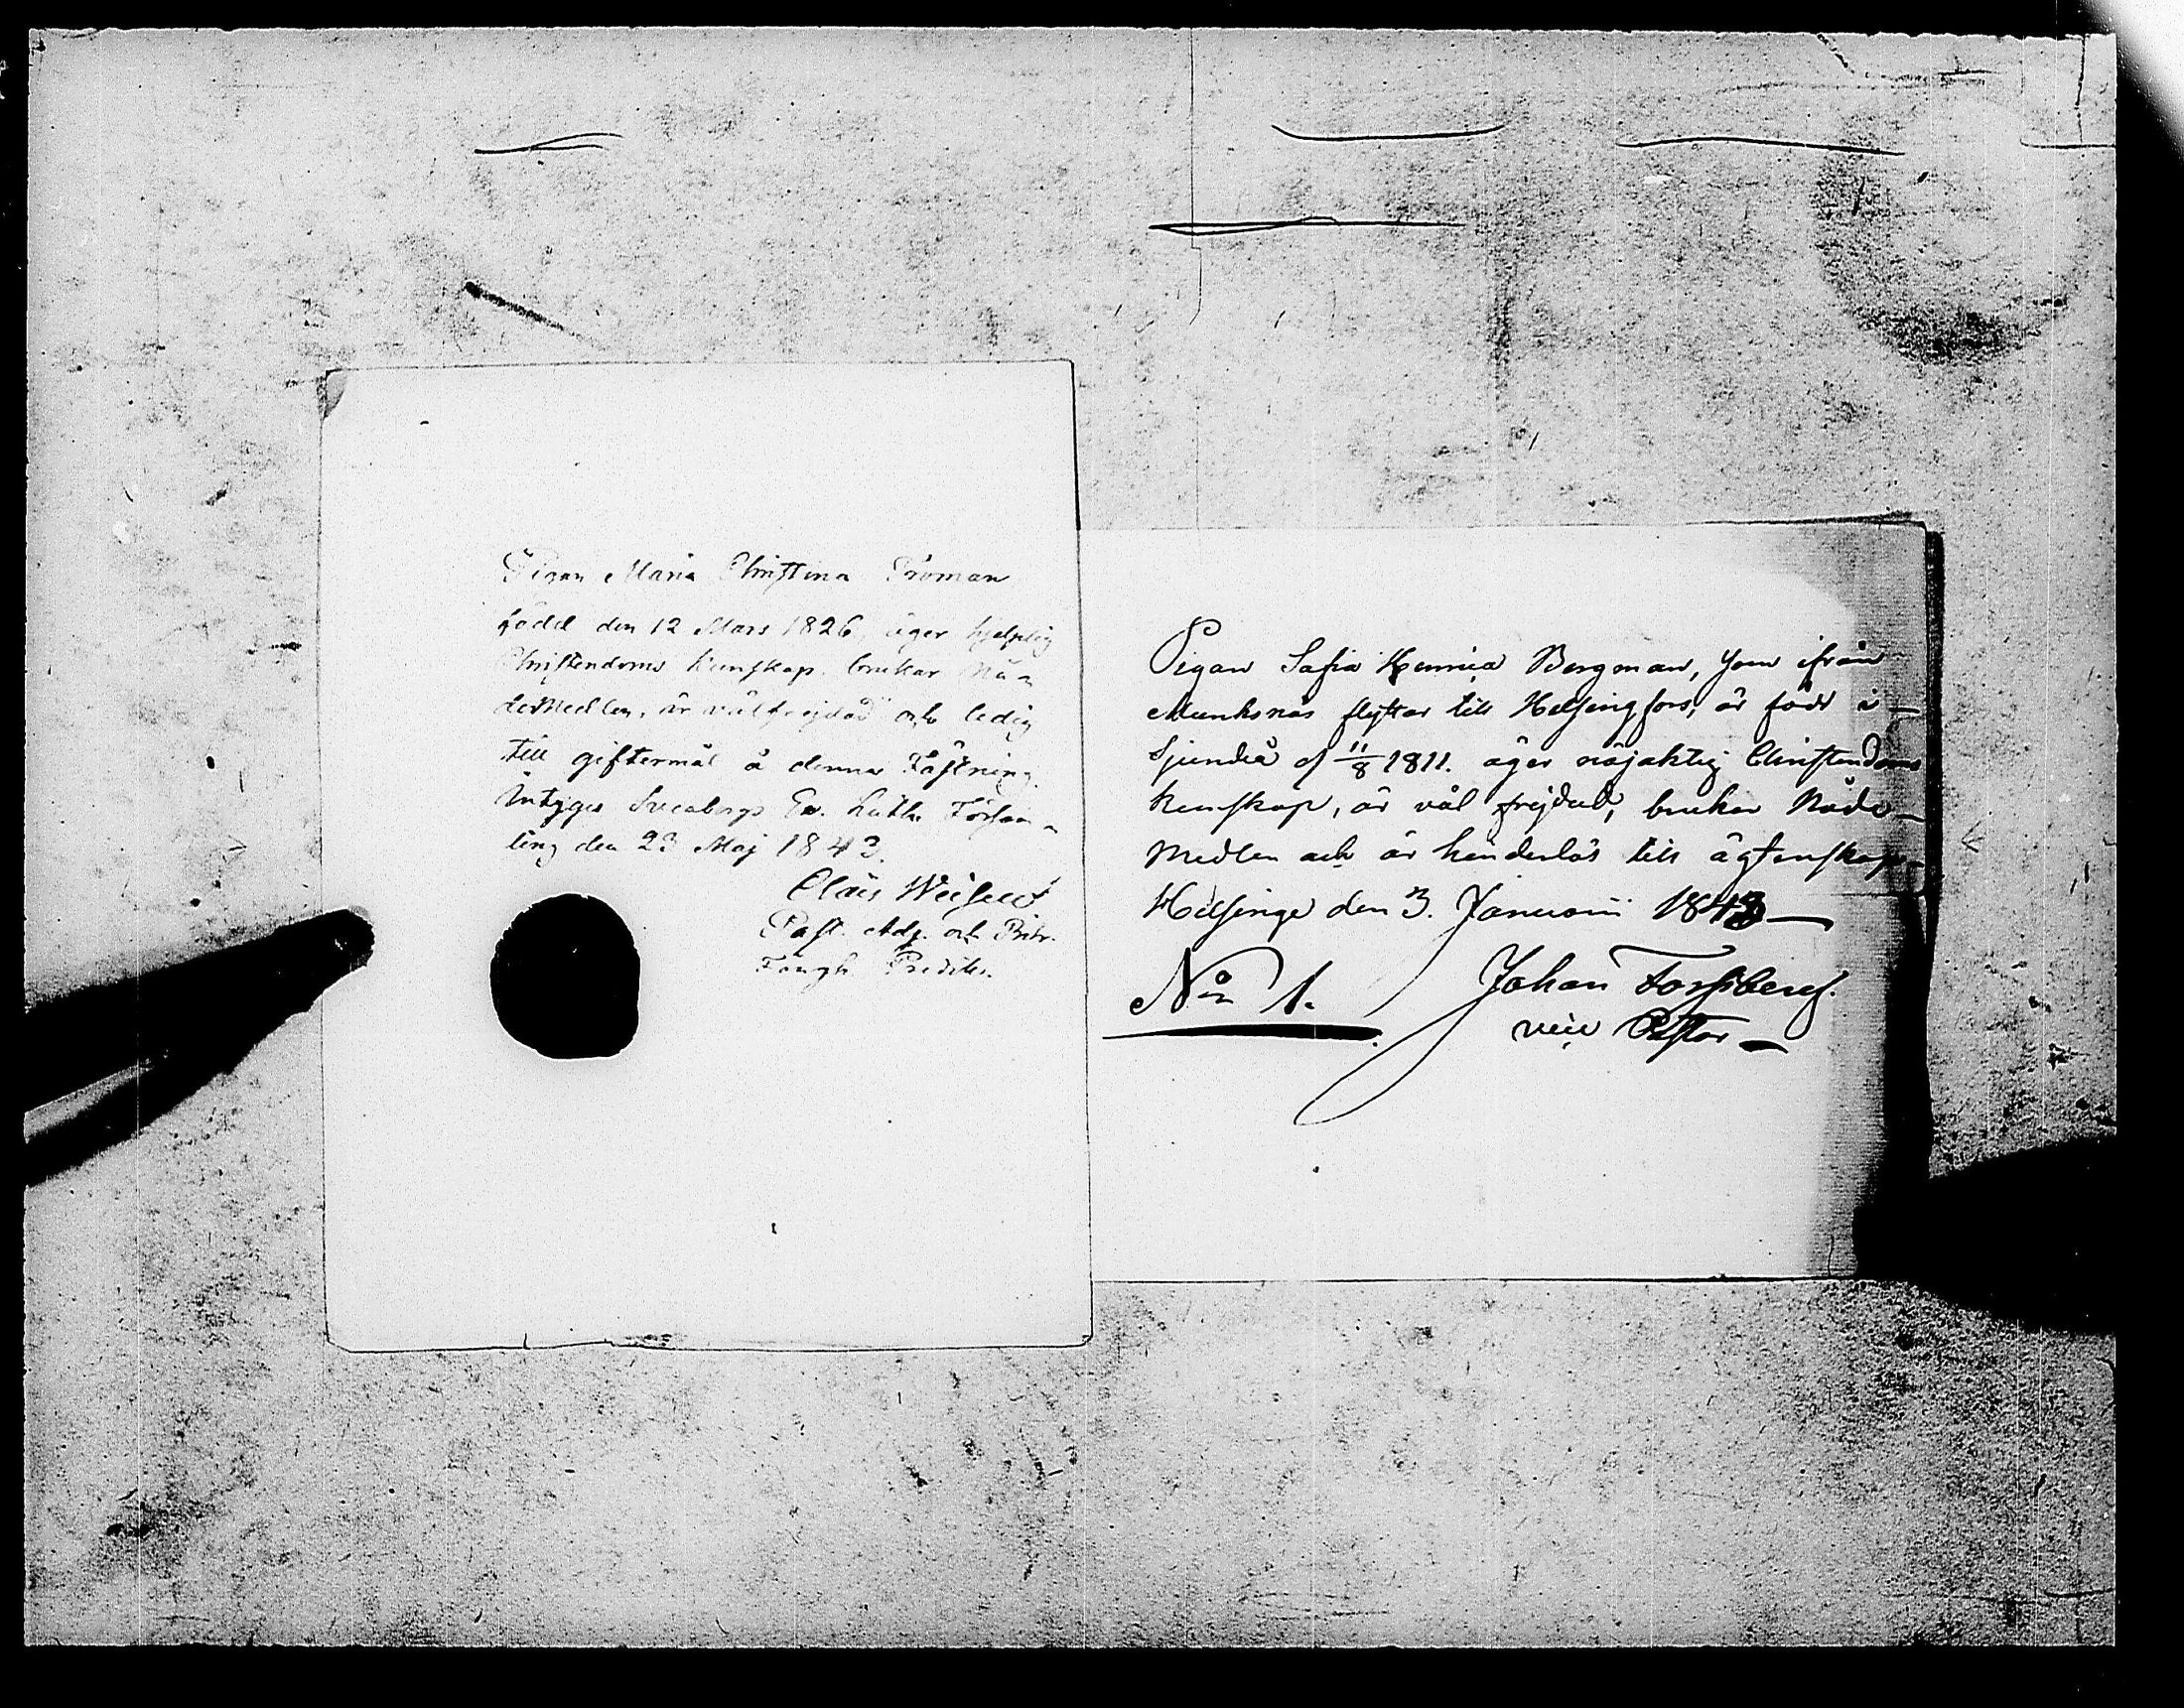 Pigan Maria Christina Froman
född den 12 Mars 1826, äger hjelplig
Christendoms kunskap, brukar Nå-
demedlen, är välfrejdad och ledig
till giftermål å denna Fästning.
Intygas Sveaborgs Ev. Luth. Försam-
ling den 23 Maj 1843.
Claës
Past. Adj. och Bitr.
Fängh. Predik.
Pigan Sofia Bergman, som ifrån
Munksnäs flyttar till Helsingfors, är född i
Sjundeå d 11/8 1811. äger nöjaktig Christendoms
kunskap, är väl frejdad, brukar Nåde-
medlen och är hinderlös till ägtenskap.
Helsinge den 3. Januarii 1843
No 1. Johan Forssberg.
vice Pastor